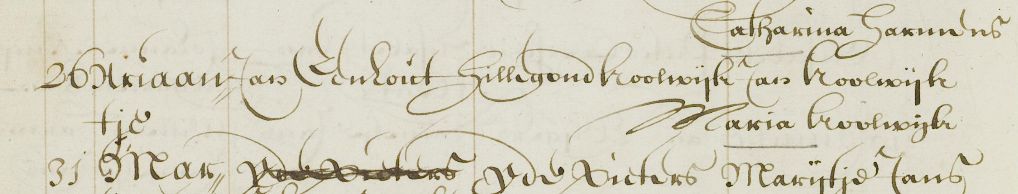 Catharina Harmens
26 Ariaan„ Jan Eenhout Hillegond koolwijk Jan koolwijk
tje Maria koolwijk
31 Mar„ Yde Pieters Yde Pieters Marijtje Jans